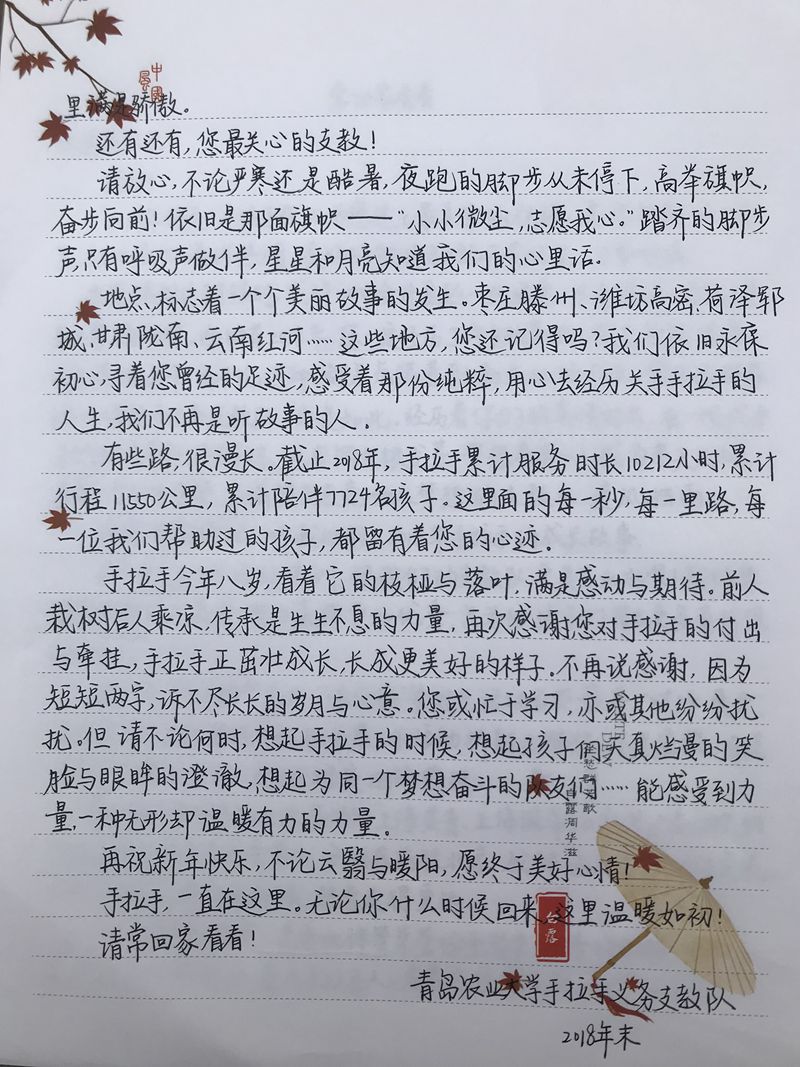 中國風
里满是骄傲。
还有还有,您最关心的支教!
请放心,不论严寒还是酷暑,夜跑的脚步从未停下,高举旗帜,
奋步向前!依旧是那面旗帜——“小小微尘,志愿我心。”踏齐的脚步
声,只有呼吸声做伴,星星和月亮知道我们的心里话.
地点,标志着一个个美丽故事的发生。枣庄滕州、潍坊高密、荷泽郓
城、甘肃陇南、云南红河……这些地方,您还记得吗?我们依旧永葆
初心,寻着您曾经的足迹,感受着那份纯粹,用心去经历关于手拉手的
人生,我们不再是听故事的人.
有些路,很漫长。截止2018年,手拉手累计服务时长10212小时,累计
行程11550公里,累计陪伴7724名孩子。这里面的每一秒,每一里路,每
一位我们帮助过的孩子,都留有着您的心迹.
手拉手今年八岁,看着它的枝桠与落叶,满是感动与期待。前人
栽树后人乘凉,传承是生生不息的力量,再次感谢您对手拉手的付出
与牵挂,手拉手正茁壮成长,长成更美好的样子。不再说感谢,因为
短短两字,诉不尽长长的岁月与心意。您或忙于学习,亦或其他纷纷扰
扰。但请不论何时,想起手拉手的时候,想起孩子们天真烂漫的笑
脸与眼眸的澄澈,想起为同一个梦想奋斗的队友们……能感受到力
量,一种无形却温暖有力的力量。
再祝新年快乐,不论云翳与暖阳,愿终于美好心情!
手拉手,一直在这里。无论你什么时候回来,这里温暖如初!
请常回家看看!
青岛农业大学手拉手义务支教队
2018年末
白露